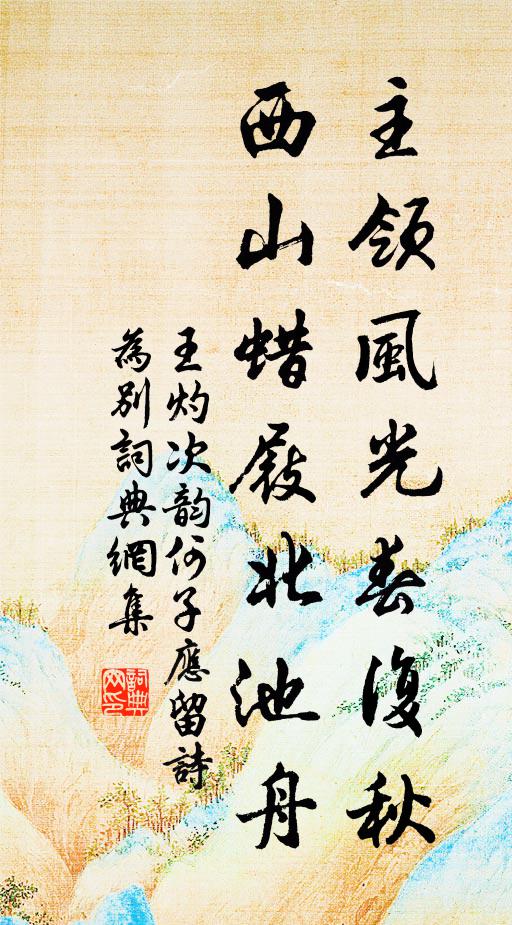 主領風光春復秋
西山蜡屐北池舟
王灼次韵何子應留詩
為別詞典網集
詞典網印